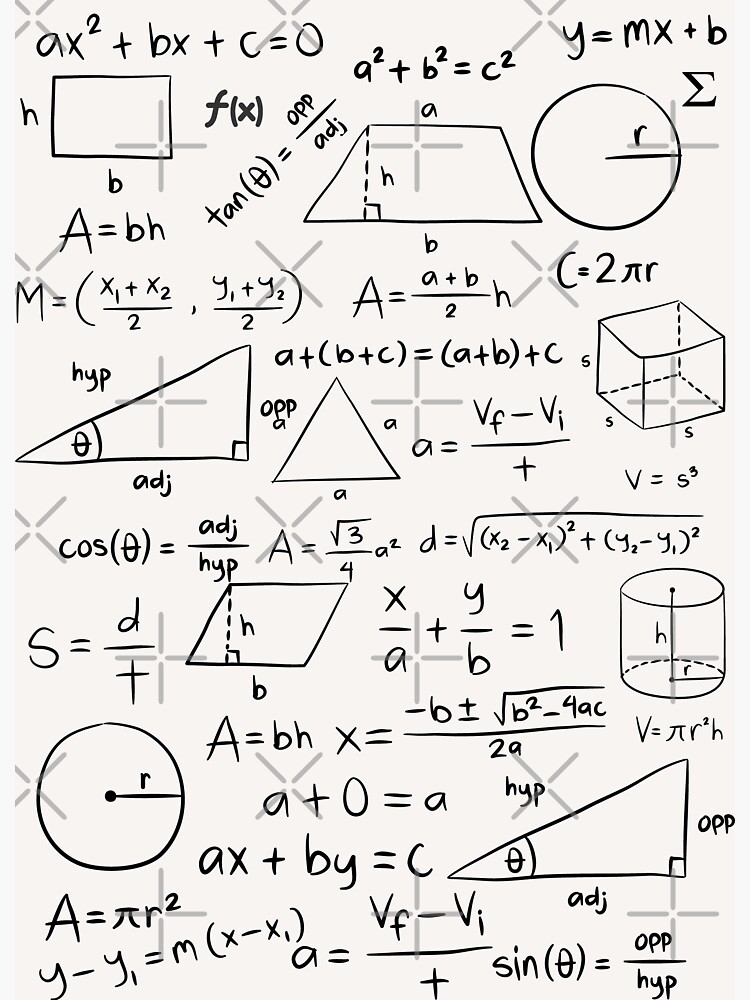 ax² + bx + c = 0
y = mx + b
a² + b² = c²
Σ
h
f(x)
tan(θ) = opp/adj
a
r
h
b
b
A = bh
C = 2πr
M = (x₁ + x₂/2 , y₁ + y₂/2)
A = a + b/2 h
a + (b + c) = (a + b) + c
hyp
opp
θ
adj
a
a
a
a = Vf − Vi/t
s
s
s
V = s³
cos(θ) = adj/hyp
A = √3/4 a²
d = √(x₂ − x₁)² + (y₂ − y₁)²
S = d/t
h
b
x/a + y/b = 1
h
r
A = bh
x = −b ± √b² − 4ac/2a
V = πr²h
r
a + 0 = a
hyp
opp
θ
adj
ax + by = c
A = πr²
y − y₁ = m(x − x₁)
a = Vf − Vi/t
sin(θ) = opp/hyp